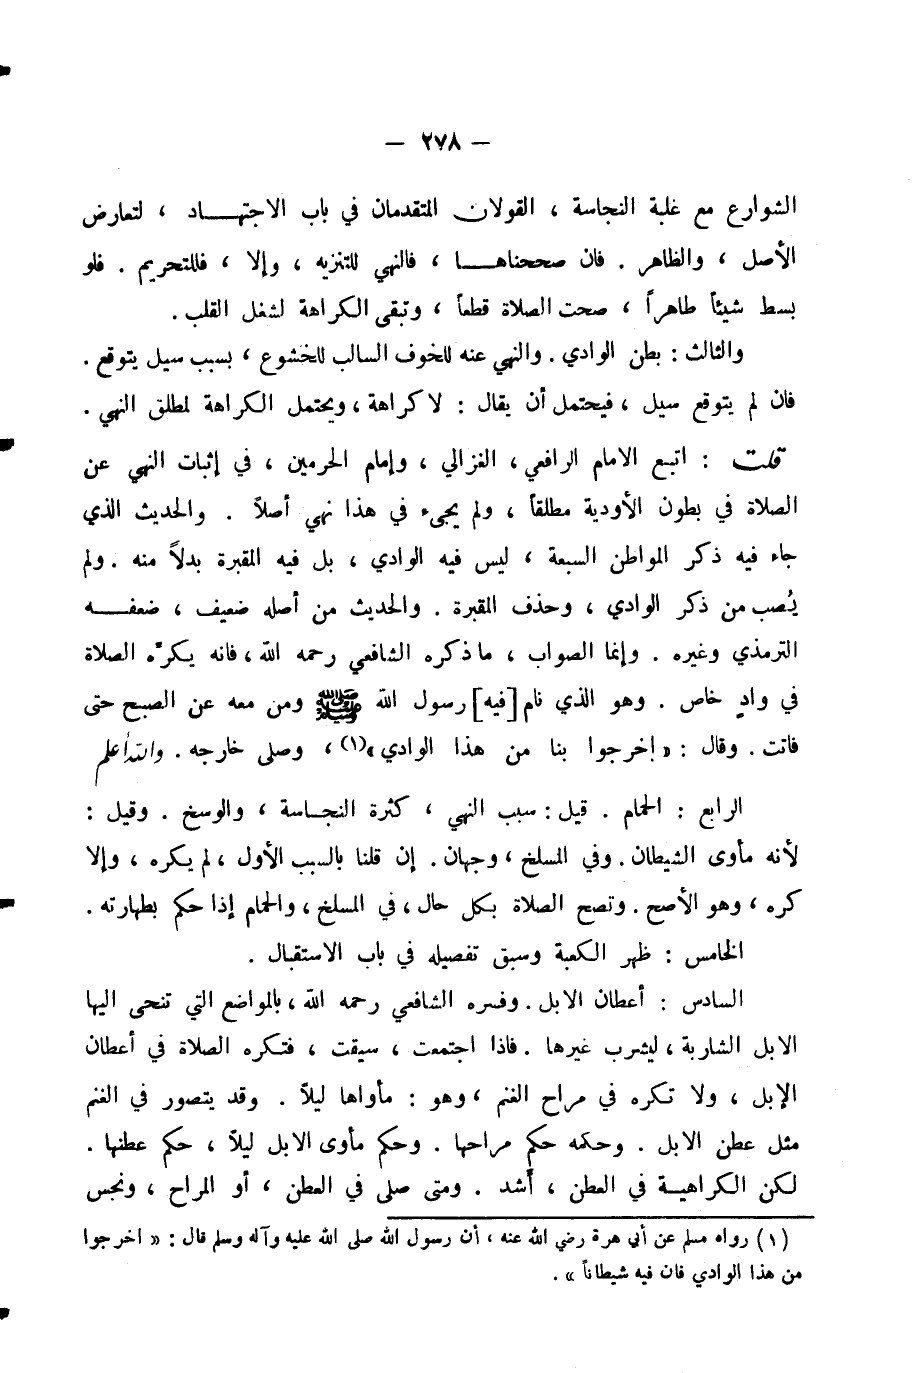 — ٢٧٨ —
الشوارع مع غلبة النجاسة ، القولان المتقدمان في باب الاجتهاد ، لتعارض
الأصل ، والظاهر . فان صححناها ، فالنهي للتنزيه ، وإلا ، فللتحريم . فلو
بسط شيئاً طاهراً ، صحت الصلاة قطعاً ، وتبقى الكراهة لشغل القلب .
والثالث : بطن الوادي . والنهي عنه للخوف السالب للخشوع ، بسبب سيل يتوقع .
فان لم يتوقع سيل ، فيحتمل أن يقال : لا كراهة ، ويحتمل الكراهة لمطلق النهي .
قلت : اتبع الامام الرافعي ، الغزالي ، وإمام الحرمين ، في إثبات النهي عن
الصلاة في بطون الأودية مطلقاً ، ولم يجىء في هذا نهي أصلاً . والحديث الذي
جاء فيه ذكر المواطن السبعة ، ليس فيه الوادي ، بل فيه المقبرة بدلاً منه . ولم
يُصب من ذكر الوادي ، وحذف المقبرة . والحديث من أصله ضعيف ، ضعفه
الترمذي وغيره . وإنما الصواب ، ما ذكره الشافعي رحمه الله ، فانه يكرّه الصلاة
في وادٍ خاص . وهو الذي نام [فيه] رسول الله ﷺ ومن معه عن الصبح حتى
فاتت . وقال : « إخرجوا بنا من هذا الوادي »(١) ، وصلى خارجه . والله أعلم
الرابع : الحمام . قيل : سبب النهي ، كثرة النجاسة ، والوسخ . وقيل :
لأنه مأوى الشيطان . وفي المسلخ ، وجهان . إن قلنا بالسبب الأول ، لم يكره ، وإلا
كره ، وهو الأصح . وتصح الصلاة بكل حال ، في المسلخ ، والحمام إذا حكم بطهارته .
الخامس : ظهر الكعبة وسبق تفصيله في باب الاستقبال .
السادس : أعطان الابل . وفسره الشافعي رحمه الله ، بالمواضع التي تنحى اليها
الابل الشاربة ، ليشرب غيرها . فاذا اجتمعت ، سيقت ، فتكره الصلاة في أعطان
الإبل ، ولا تكره في مراح الغنم ، وهو : مأواها ليلاً . وقد يتصور في الغنم
مثل عطن الابل . وحكمه حكم مراحها . وحكم مأوى الابل ليلاً ، حكم عطنها .
لكن الكراهية في العطن ، أشد . ومتى صلى في العطن ، أو المراح ، ونجس
(١) رواه مسلم عن أبي هرة رضي الله عنه ، أن رسول الله صلى الله عليه وآله وسلم قال : « اخرجوا
من هذا الوادي فان فيه شيطاناً » .